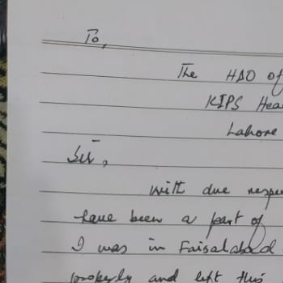 To,
The HAO of
KIPS Hea
Lahore
Sir,
with due respe
have been a part of
I was in Faisalabad
properly and left this